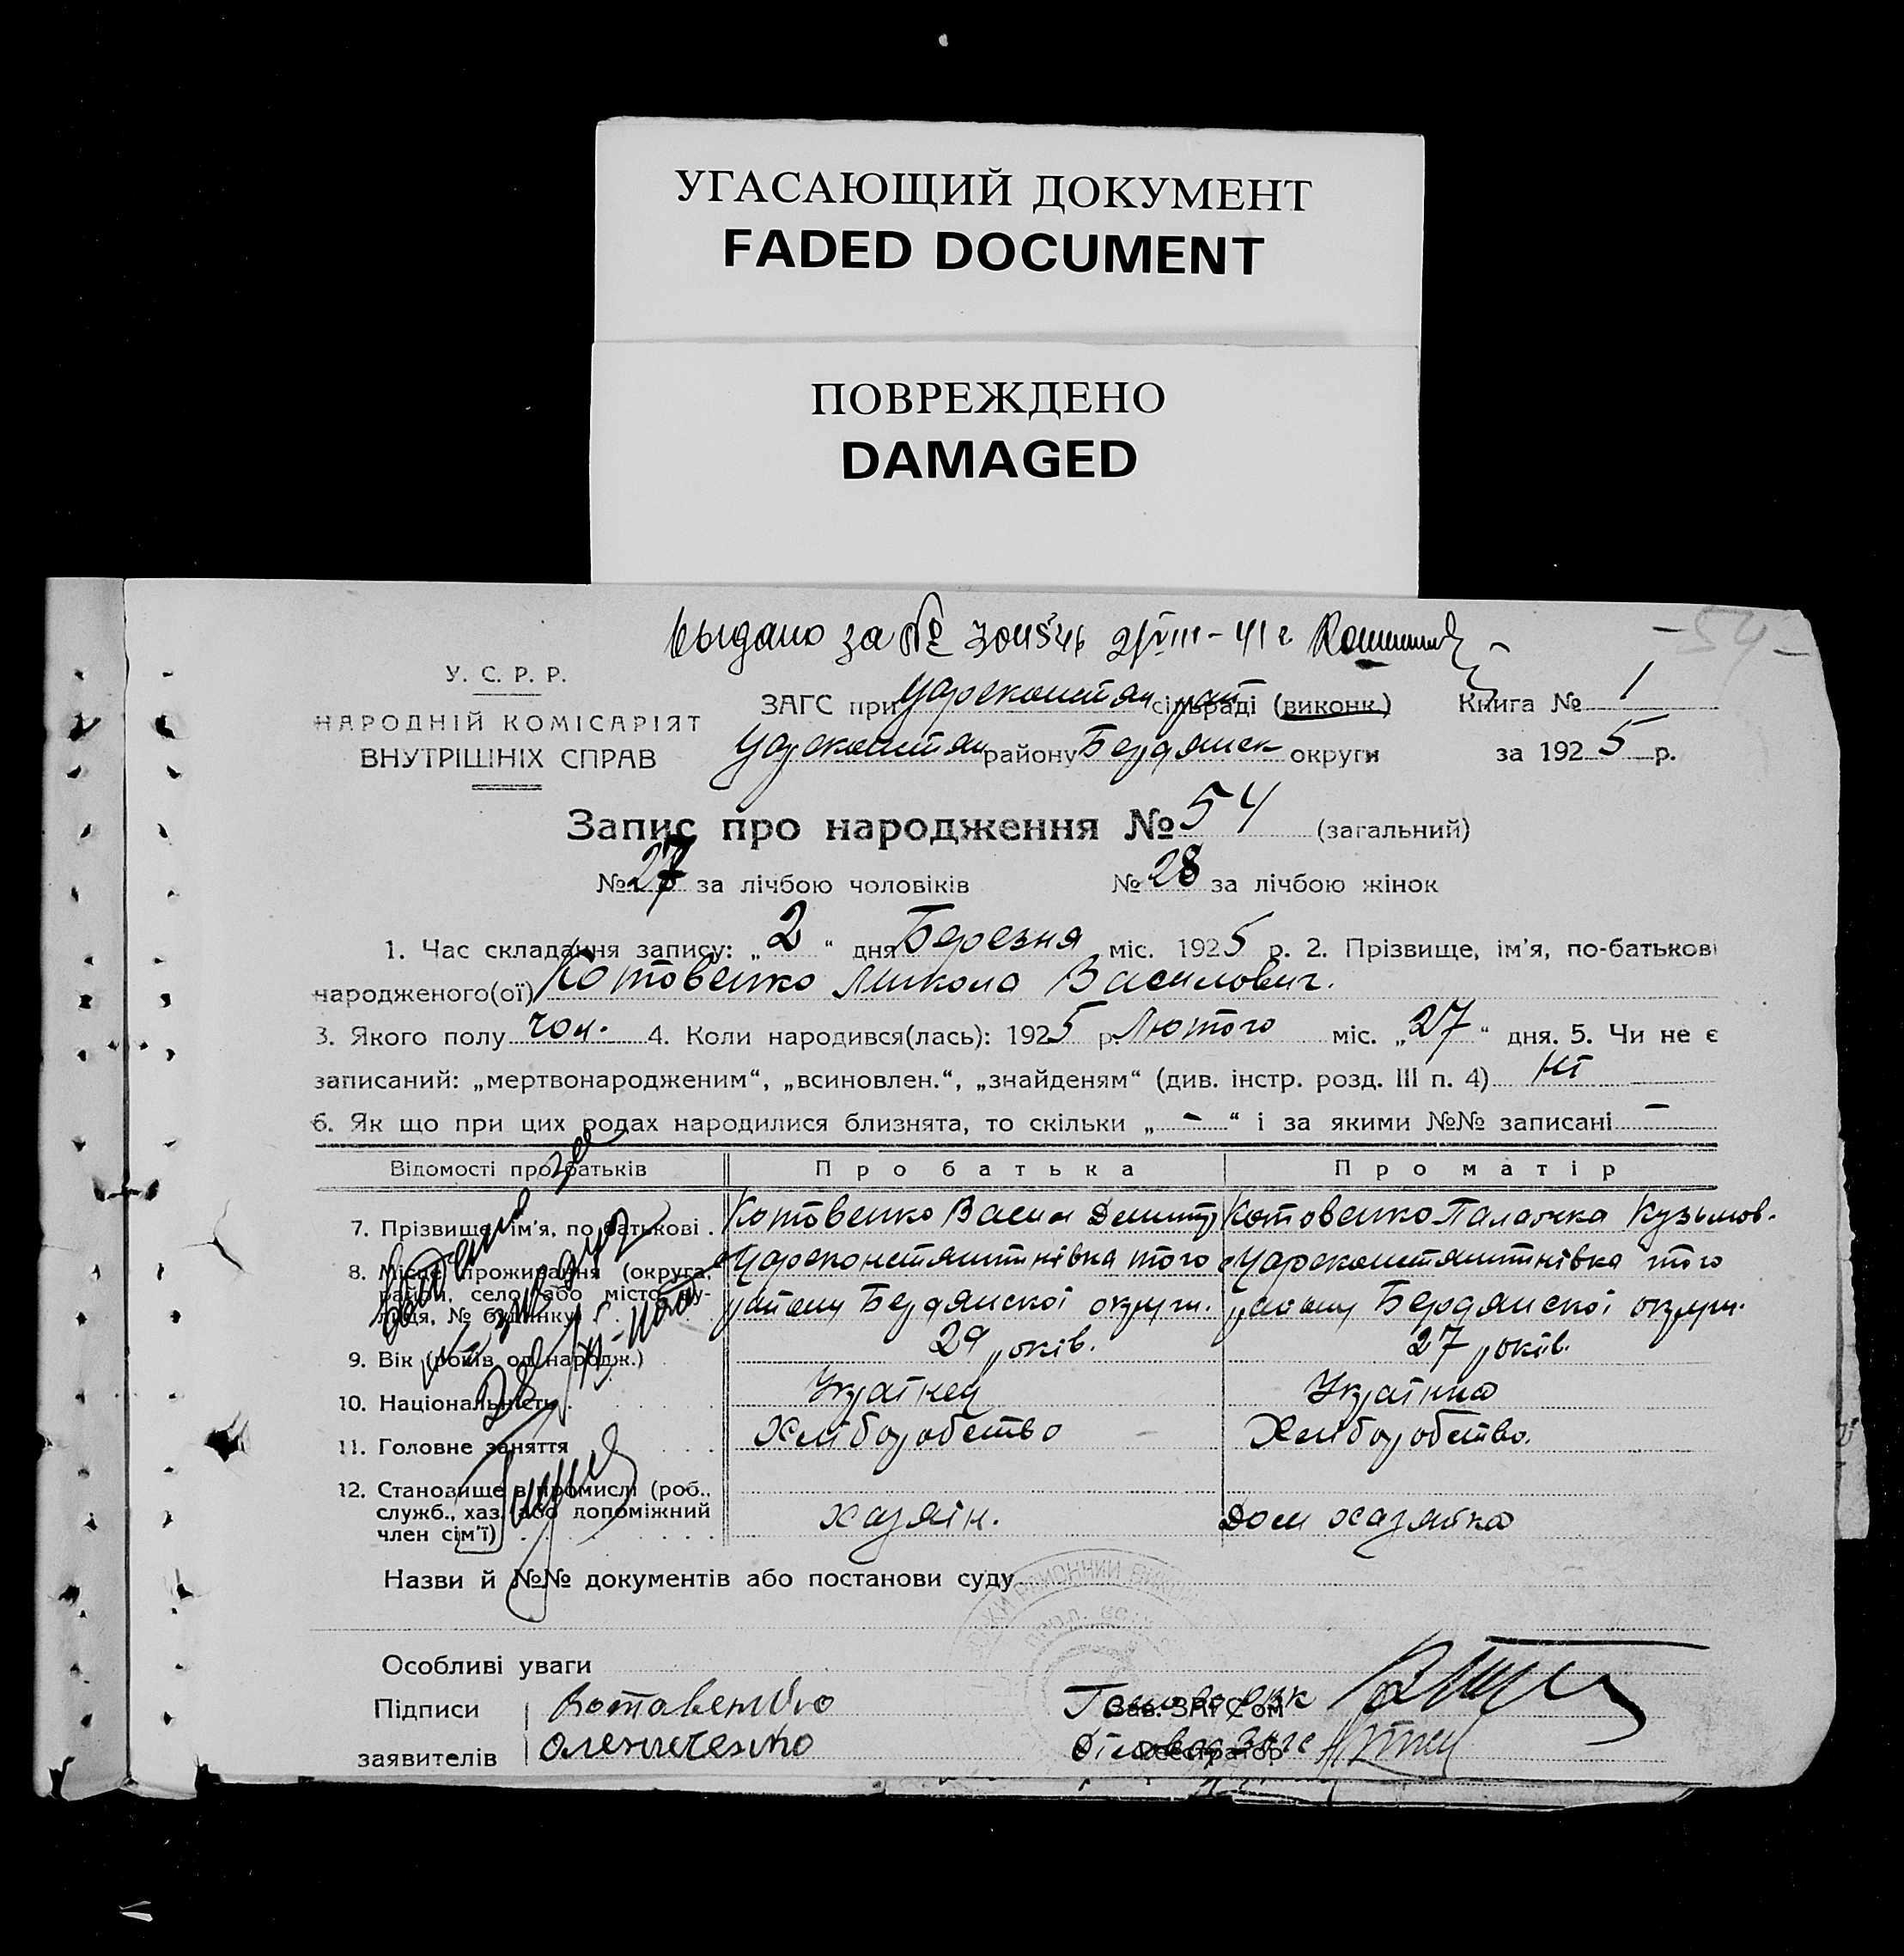 УГАСАЮЩИЙ ДОКУМЕНТ
FADED DOCUMENT
ПОВРЕЖДЕНО
DAMAGED
Выдано за № 21/VIII-41 г
-54-
У. С. Р. Р.
НАРОДНІЙ КОМІСАРІЯТ
ВНУТРІШНІХ СПРАВ
ЗАГС при Царсконстян сільраді (виконк.) Книга № 1
Царсконстян району Бердянськ округи за 1925 р.
Запис про народження № 54 (загальний)
№ 27 за лічбою чоловіків № 28 за лічбою жінок
1. Час складання запису: „2“ дня Березня міс. 1925 р. 2. Прізвище, ім'я, по-батькові
народженого(ої) Котовенко Микола Василович.
3. Якого полу чол. 4. Коли народився(лась): 1925 р. Лютого міс. „27“ дня. 5. Чи не є
записаний: „мертвонародженим“, „всиновлен.“, „знайденям“ (див. інстр. розд. III п. 4) Ні
6. Як що при цих родах народилися близнята, то скільки „-“ і за якими №№ записані —
Відомості про батьків Про батька Про матір
7. Прізвище, ім'я, по батькові . Котовенко Васил Демит Котовенко Палажка Кузьмов.
8. Місце проживання (округа, с Царсконстянтинівка того с Царсконстянтинівка того
район, село або місто, ву-
лиця, № будинку) району Бердянської округи. району Бердянської округи.
9. Вік (років од народж.) 29 років. 27 років.
10. Національність . Українец Українка
11. Головне заняття Хліборобство Хліборобство.
12. Становище в промислі (роб.,
служб., хаз. або допоміжний
член сім'ї) хазяїн. Дом хазяйка
Назви й №№ документів або постанови суду
Особливі уваги
Підписи Котавенко Зав. ЗАГС'ом
заявителів Реєстратор